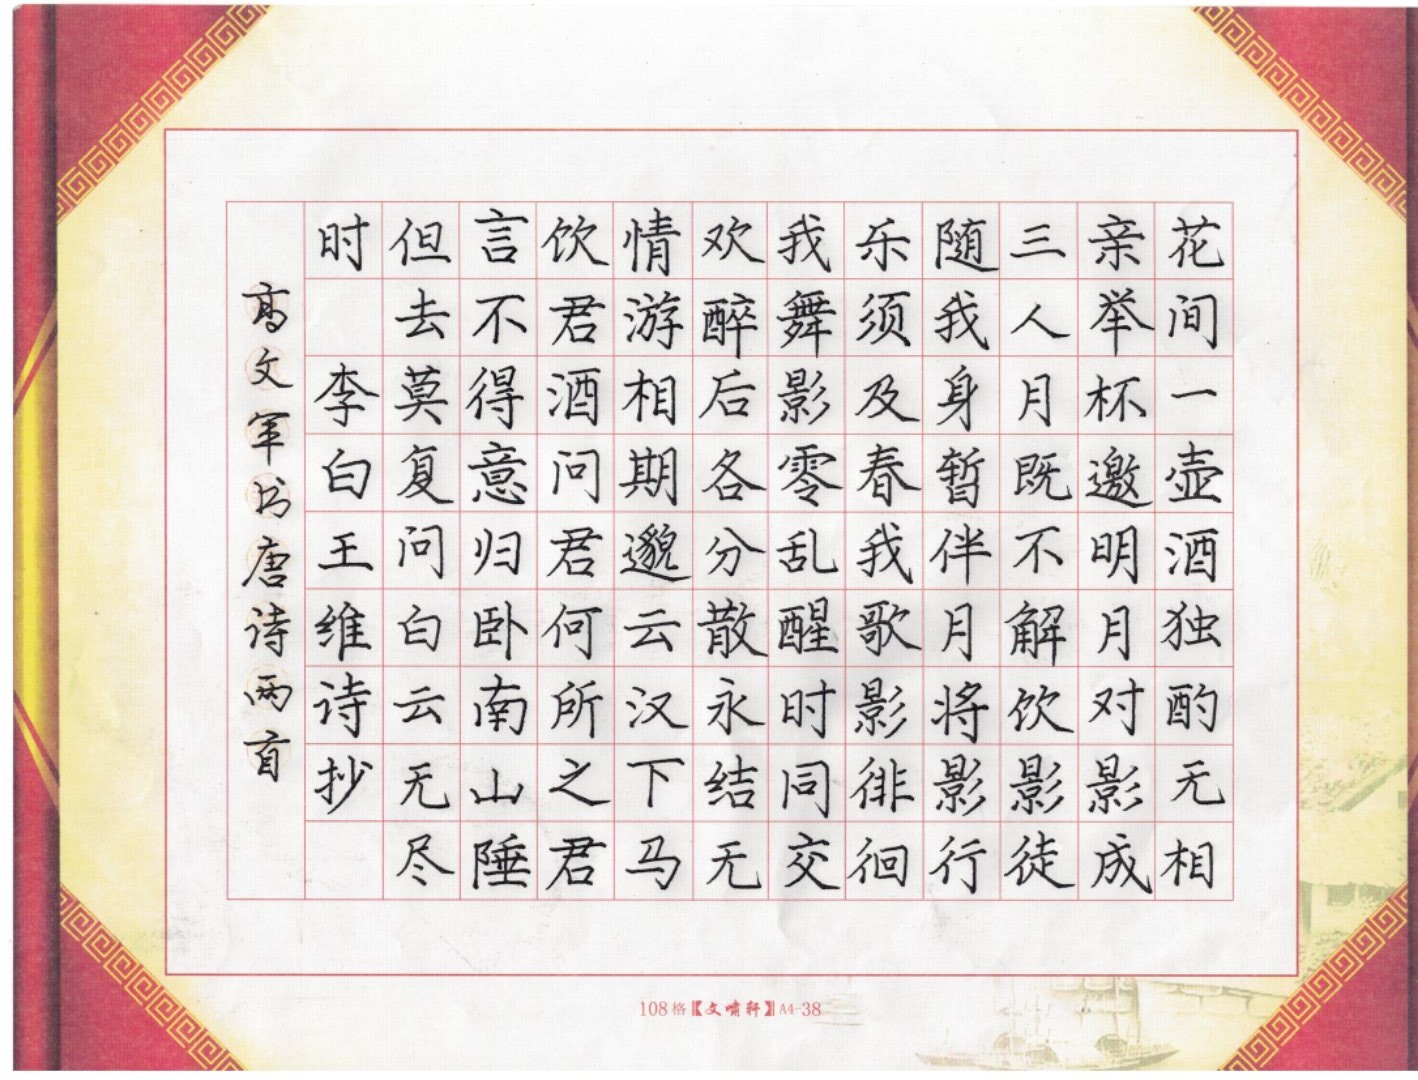 花间一壶酒独酌无相
亲举杯邀明月对影成
三人月既不解饮影徒
随我身暂伴月将影行
乐须及春我歌影徘徊
我舞影零乱醒时同交
欢醉后各分散永结无
情游相期邈云汉下马
饮君酒问君何所之君
言不得意归卧南山陲
但去莫复问白云无尽
时 李白王维诗抄
高文军书唐诗两首
108格【文啸轩】A4-38